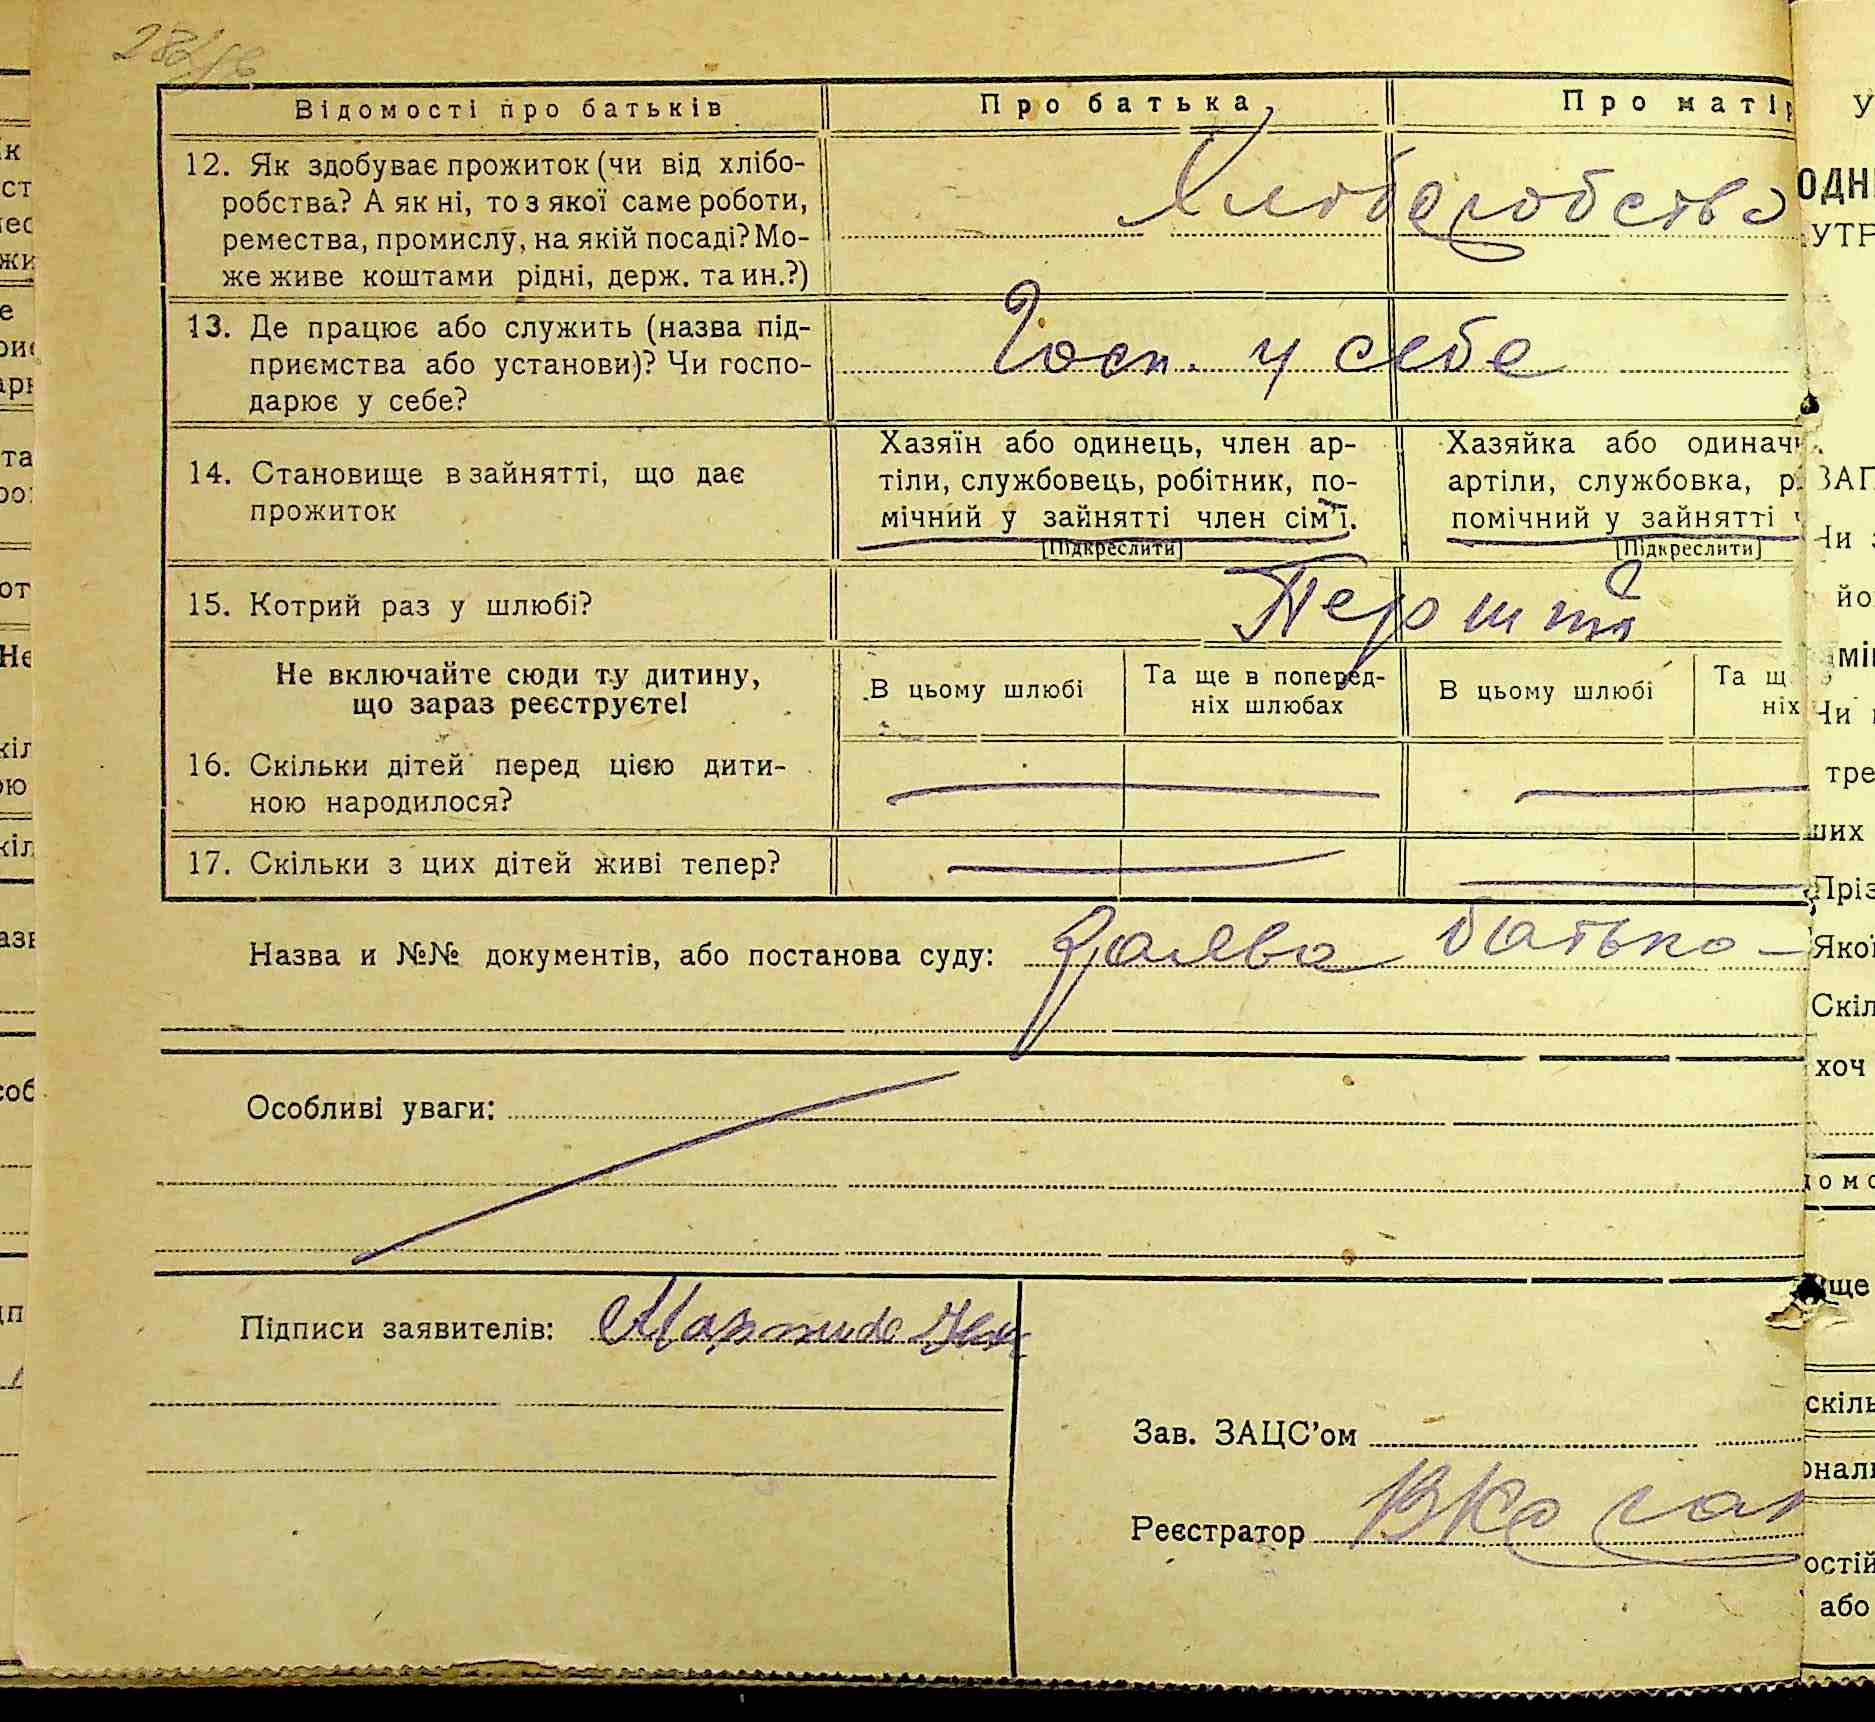 Відомості про батьків
Про батька
Про матір
12. Як здобуває прожиток (чи від хлібо-
робства? А як ні, то з якої саме роботи,
ремества, промислу, на якій посаді? Мо-
же живе коштами рідні, держ. та ин.?)
Хлиборобство
13. Де працює або служить (назва під-
приємства або установи)? Чи госпо-
дарює у себе?
Госп. у себе
14. Становище в зайнятті, що дає
прожиток
Хазяїн або одинець, член ар-
тіли, службовець, робітник, по-
мічний у зайнятті член сім'ї.
[Підкреслити]
Хазяйка або одинач
артіли, службовка, р
помічний у зайнятті
[Підкреслити]
15. Котрий раз у шлюбі?
Перший
Не включайте сюди ту дитину,
що зараз реєструєте!
В цьому шлюбі
Та ще в поперед-
ніх шлюбах
В цьому шлюбі
Та щ
ніх
16. Скільки дітей перед цією дити-
ною народилося?
17. Скільки з цих дітей живі тепер?
Назва и №№ документів, або постанова суду: Заява батька
Особливі уваги:
Підписи заявителів:
Зав. ЗАЦС'ом
Реєстратор